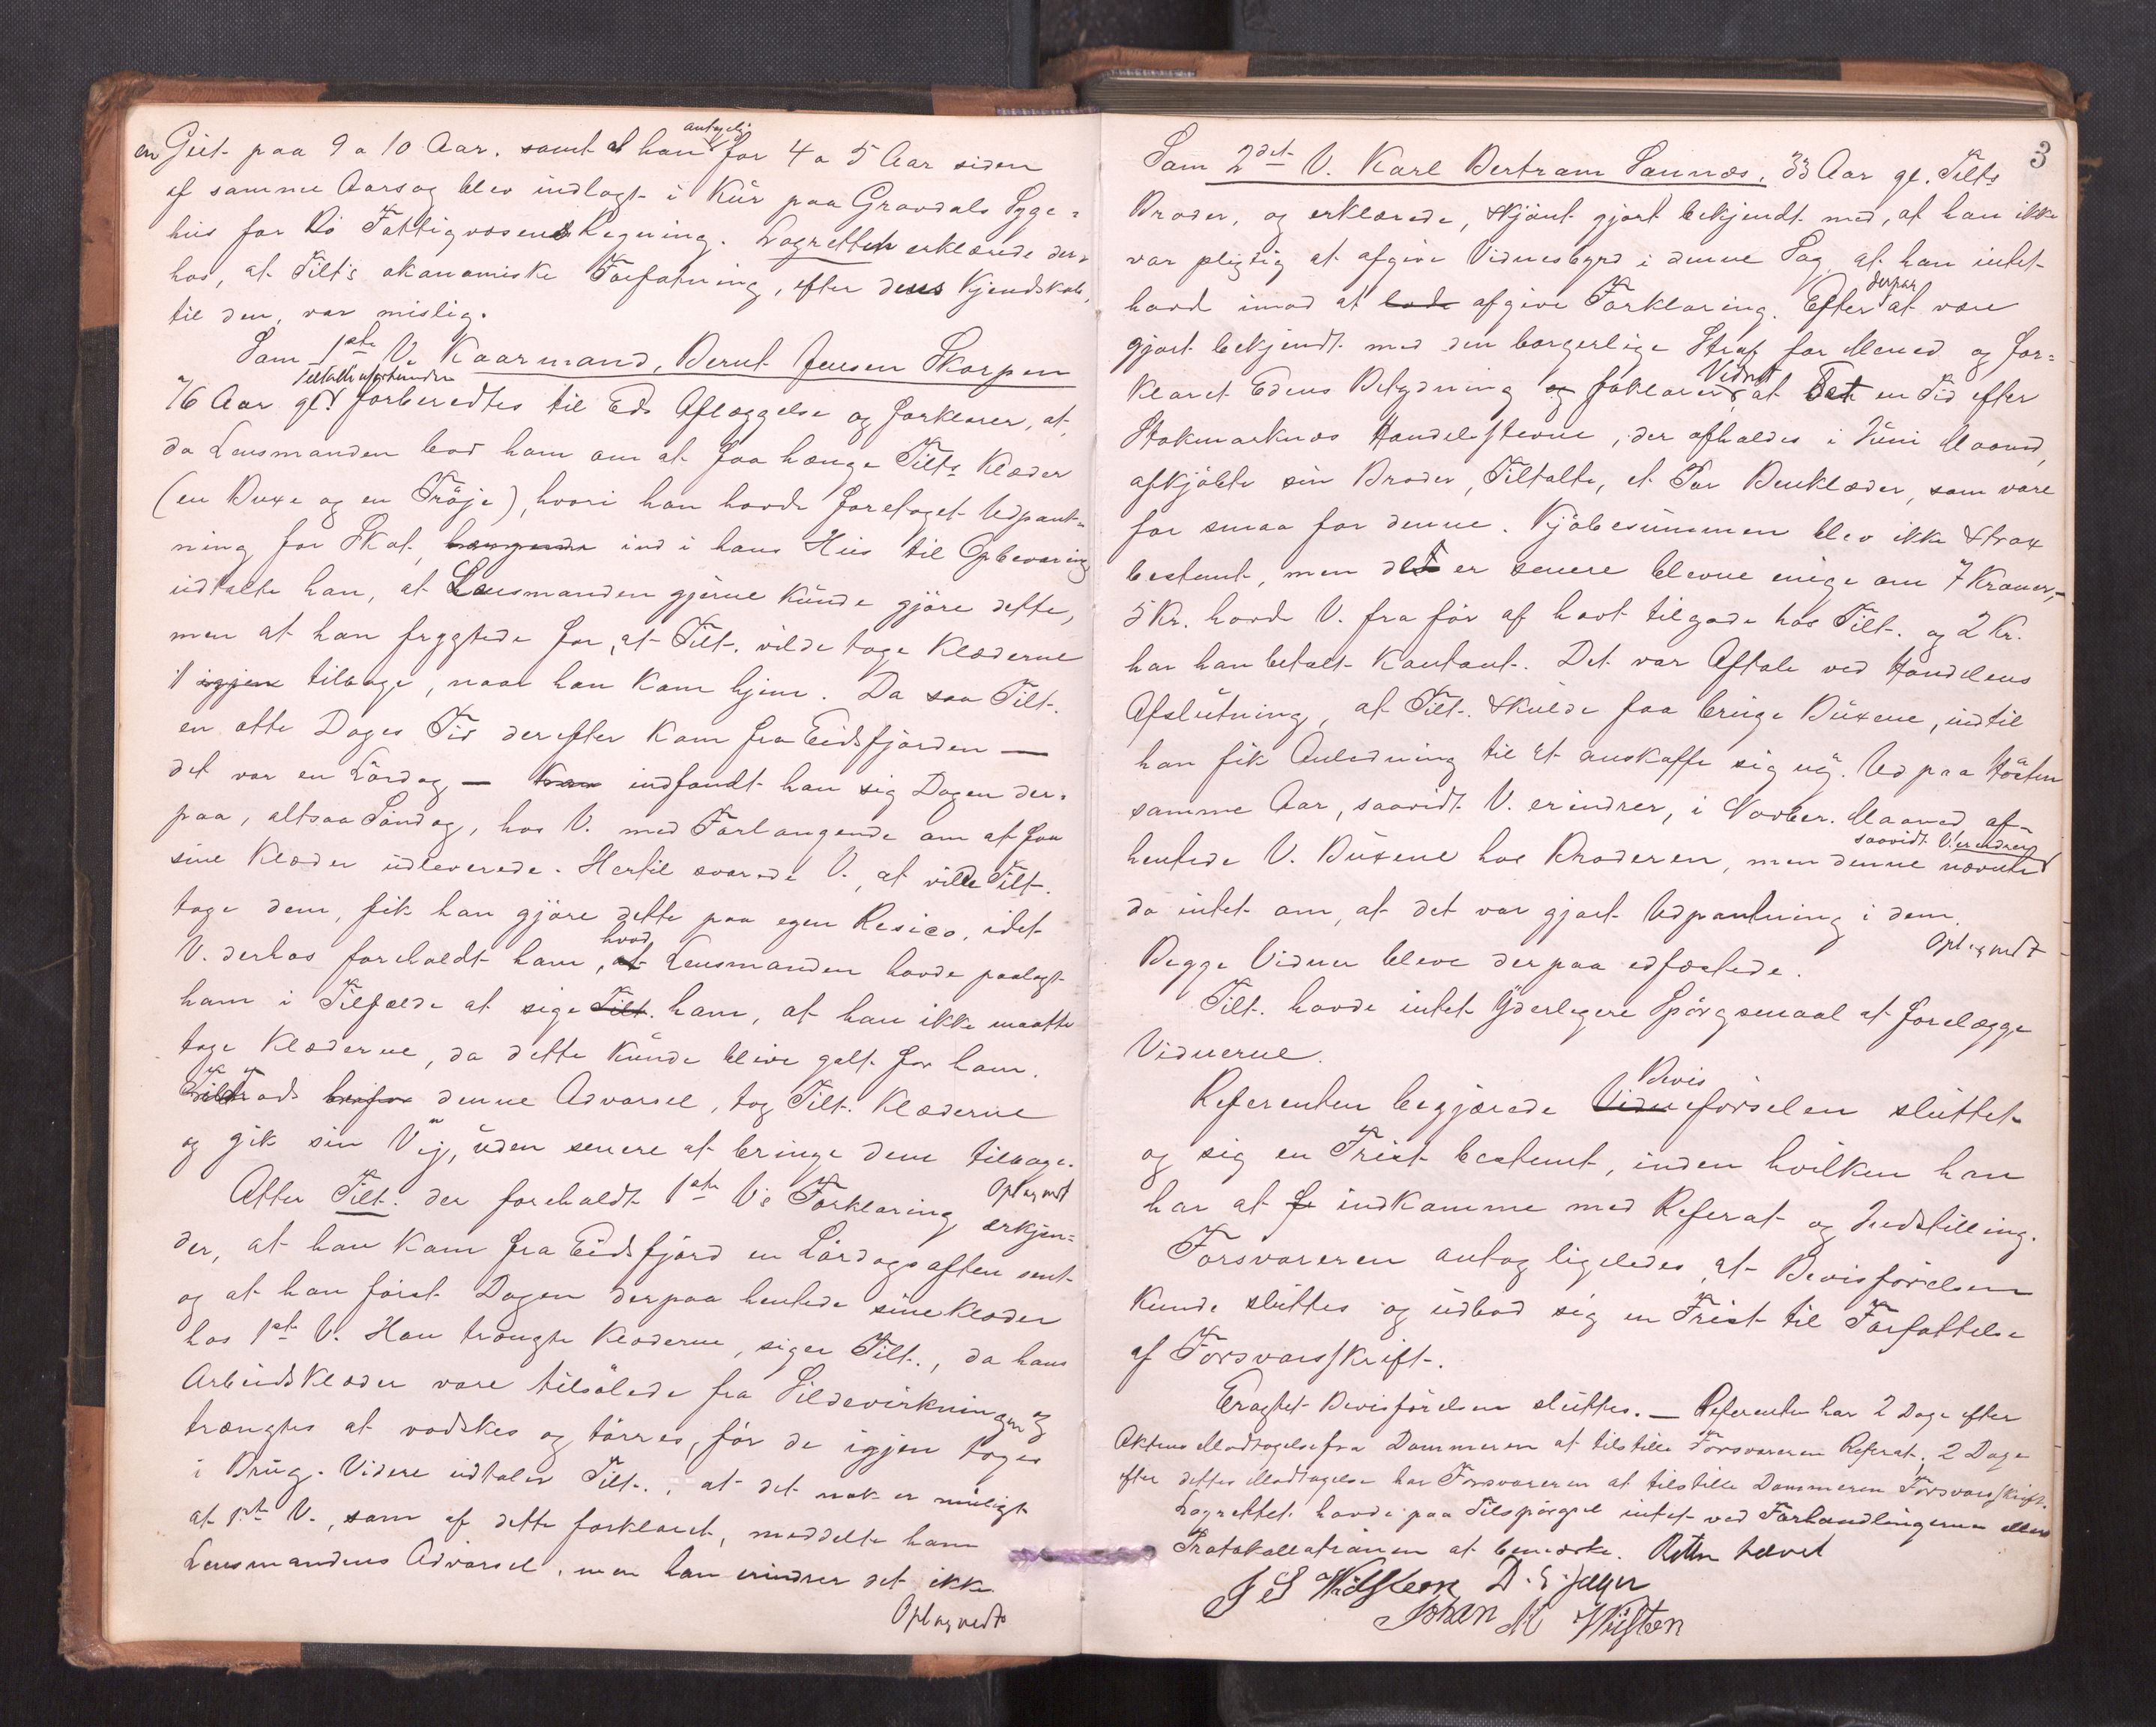 en Gut paa 9 a 10 Aar. samt at han antagelig for 4 a 5 Aar siden
af samme Aarsag blev indlagt i Kur paa Gravdals Syge=
hus for Bø Fattigvæsens Regning. Lagretten erklærede der=
hos, at Tilt's økonomiske Forfatning, efter dens Kjendskab
til den, var mislig.
Som 1ste V. Kaarmand, Bernt Jensen Skorpen
76 Aar gl. Tiltalte uforbunden forberedtes til Eds Aflæggelse og forklarer, at
da Lensmanden bad ham om at faa hænge Tilts Klæder
(en Buxe og en Trøje), hvori han havde foretaget Udpant-
ning for Skat, hængende ind i hans Hus til Opbevaring
udtalte han, at Lensmanden gjerne kunde gjøre dette,
men at han frygtede for, at Tilt. vilde tage Klæderne
igjen tilbage, naar han kom hjem. Da saa Tilt.
en otte Dages Tid derefter kom fra Eidsfjorden —
det var en Lørdag — kom indfandt han sig Dagen der=
paa, altsaa Søndag, hos V. med Forlangende om at faa
sine Klæder udleverede. Hertil svarede V., at vilde Tilt.
tage dem, fik han gjøre dette paa egen Resico, idet
V. derhos foreholdt ham, at hvad Lensmanden havde paalagt
ham i Tilfælde at sige Tilt. ham, at han ikke maatte
tage Klæderne, da dette kunde blive galt for ham.
Tiltrods denne Advarsel, tog Tilt. Klæderne
og gik sin Vej, uden senere at bringe dem tilbage.
Oplæst og vedt.
Atter Tilt. der foreholdt 1ste V's Forklaring erkjen=
der, at han kom fra Eidsfjord en Lørdagsaften sent
og at han først Dagen derpaa hentede sine Klæder
hos 1ste V. Han trængte Klæderne, siger Tilt., da hans
Arbeidsklæder vare tilsølede fra Sildevirkningen og
trængtes at vadskes og tørres, før de igjen toges
i Brug. Videre udtaler Tilt., at det nok er muligt
at 1ste V., som af dette forklaret, meddelte ham
Lensmandens Advarsel, men han erindrer det ikke.
Opl og vedt
3
Som 2det V. Karl Bertram Sannæs, 33 Aar gl. Tilts
Broder, og erklærede, skjønt gjort bekjendt med, at han ikke
var pligtig at afgive Vidnesbyrd i denne Sag, at han intet
havd imod at lade afgive Forklaring. Efter derpaa at være
gjort bekjendt med den borgerlige Straf for Mened og for=
klaret Edens Betydning og foklarer Vidnet at det en Tid efter
Stokmarknæs Handelsstevne, der afholdes i Juni Maaned,
afkjøbte sin Broder, Tiltalte, et Par Benklæder, som vare
for smaa for denne. Kjøbesummen blev ikke strax
bestemt, men de er senere blevne enige om 7 Kroner,-
5 Kr. havde V. fra før af havt tilgode hos Tilt. og 2 Kr.
har han betalt kontant. Det var Aftale ved Handelens
Afslutning, at Tilt. skulde faa bruge Buxene, indtil
han fik Anledning til at anskaffe sig ny. Ud paa Høsten
samme Aar, saavidt V. erindrer, i Novber. Maaned af-
hentede V. Buxene hos Broderen, men denne nævnte saavidt V. erindrer
da intet om, at det var gjort Udpantning i dem.
Opl og vedt
Begge Vidner bleve derpaa edfæstede.
Tilt. havde intet yderlegere Spørgsmaal at forelægge
Vidnerne.
Referenten begjærede Vidne Bevisførselen sluttet
og sig en Frist bestemt, inden hvilken han
har at indkomme med Referat og Indstilling.
Forsvareren antog ligeledes, at Bevisførelsen
kunde sluttes og udbad sig en Frist til Forfattelse
af Forsvarsskrift.
Eragtet Bevisførelsen sluttes. — Referenten har 2 Dage efter
Aktens Modtagelse fra Dommeren at tilstille Forsvareren Referat. 2 Dage
efter dettes Modtagelse har Forsvareren at tilstille Dommeren Forsvarsskrift.
Lagrettet havde paa Tilspørgsel intet ved Forhandlingerne eller
Protokollationen at bemærke. Retten hævet
Johan M